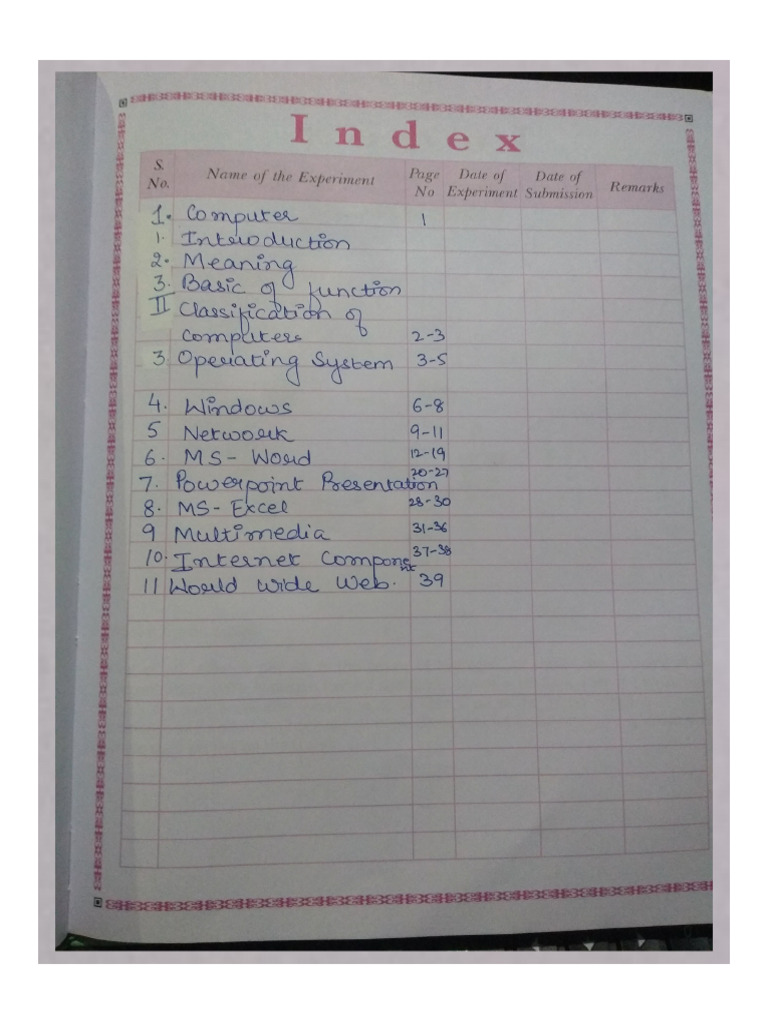 Index
S. No. Name of the Experiment Page No Date of Experiment Date of Submission Remarks
1. Computer 1
1. Introduction
2. Meaning
3. Basic of function
II Classification of
computers 2-3
3 Operating System 3-5
4. Windows 6-8
5 Network 9-11
6. MS-Word 12-19
7. Powerpoint Presentation 20-27
8. MS-Excel 28-30
9 Multimedia 31-36
10. Internet Component 37-38
11 World Wide Web. 39